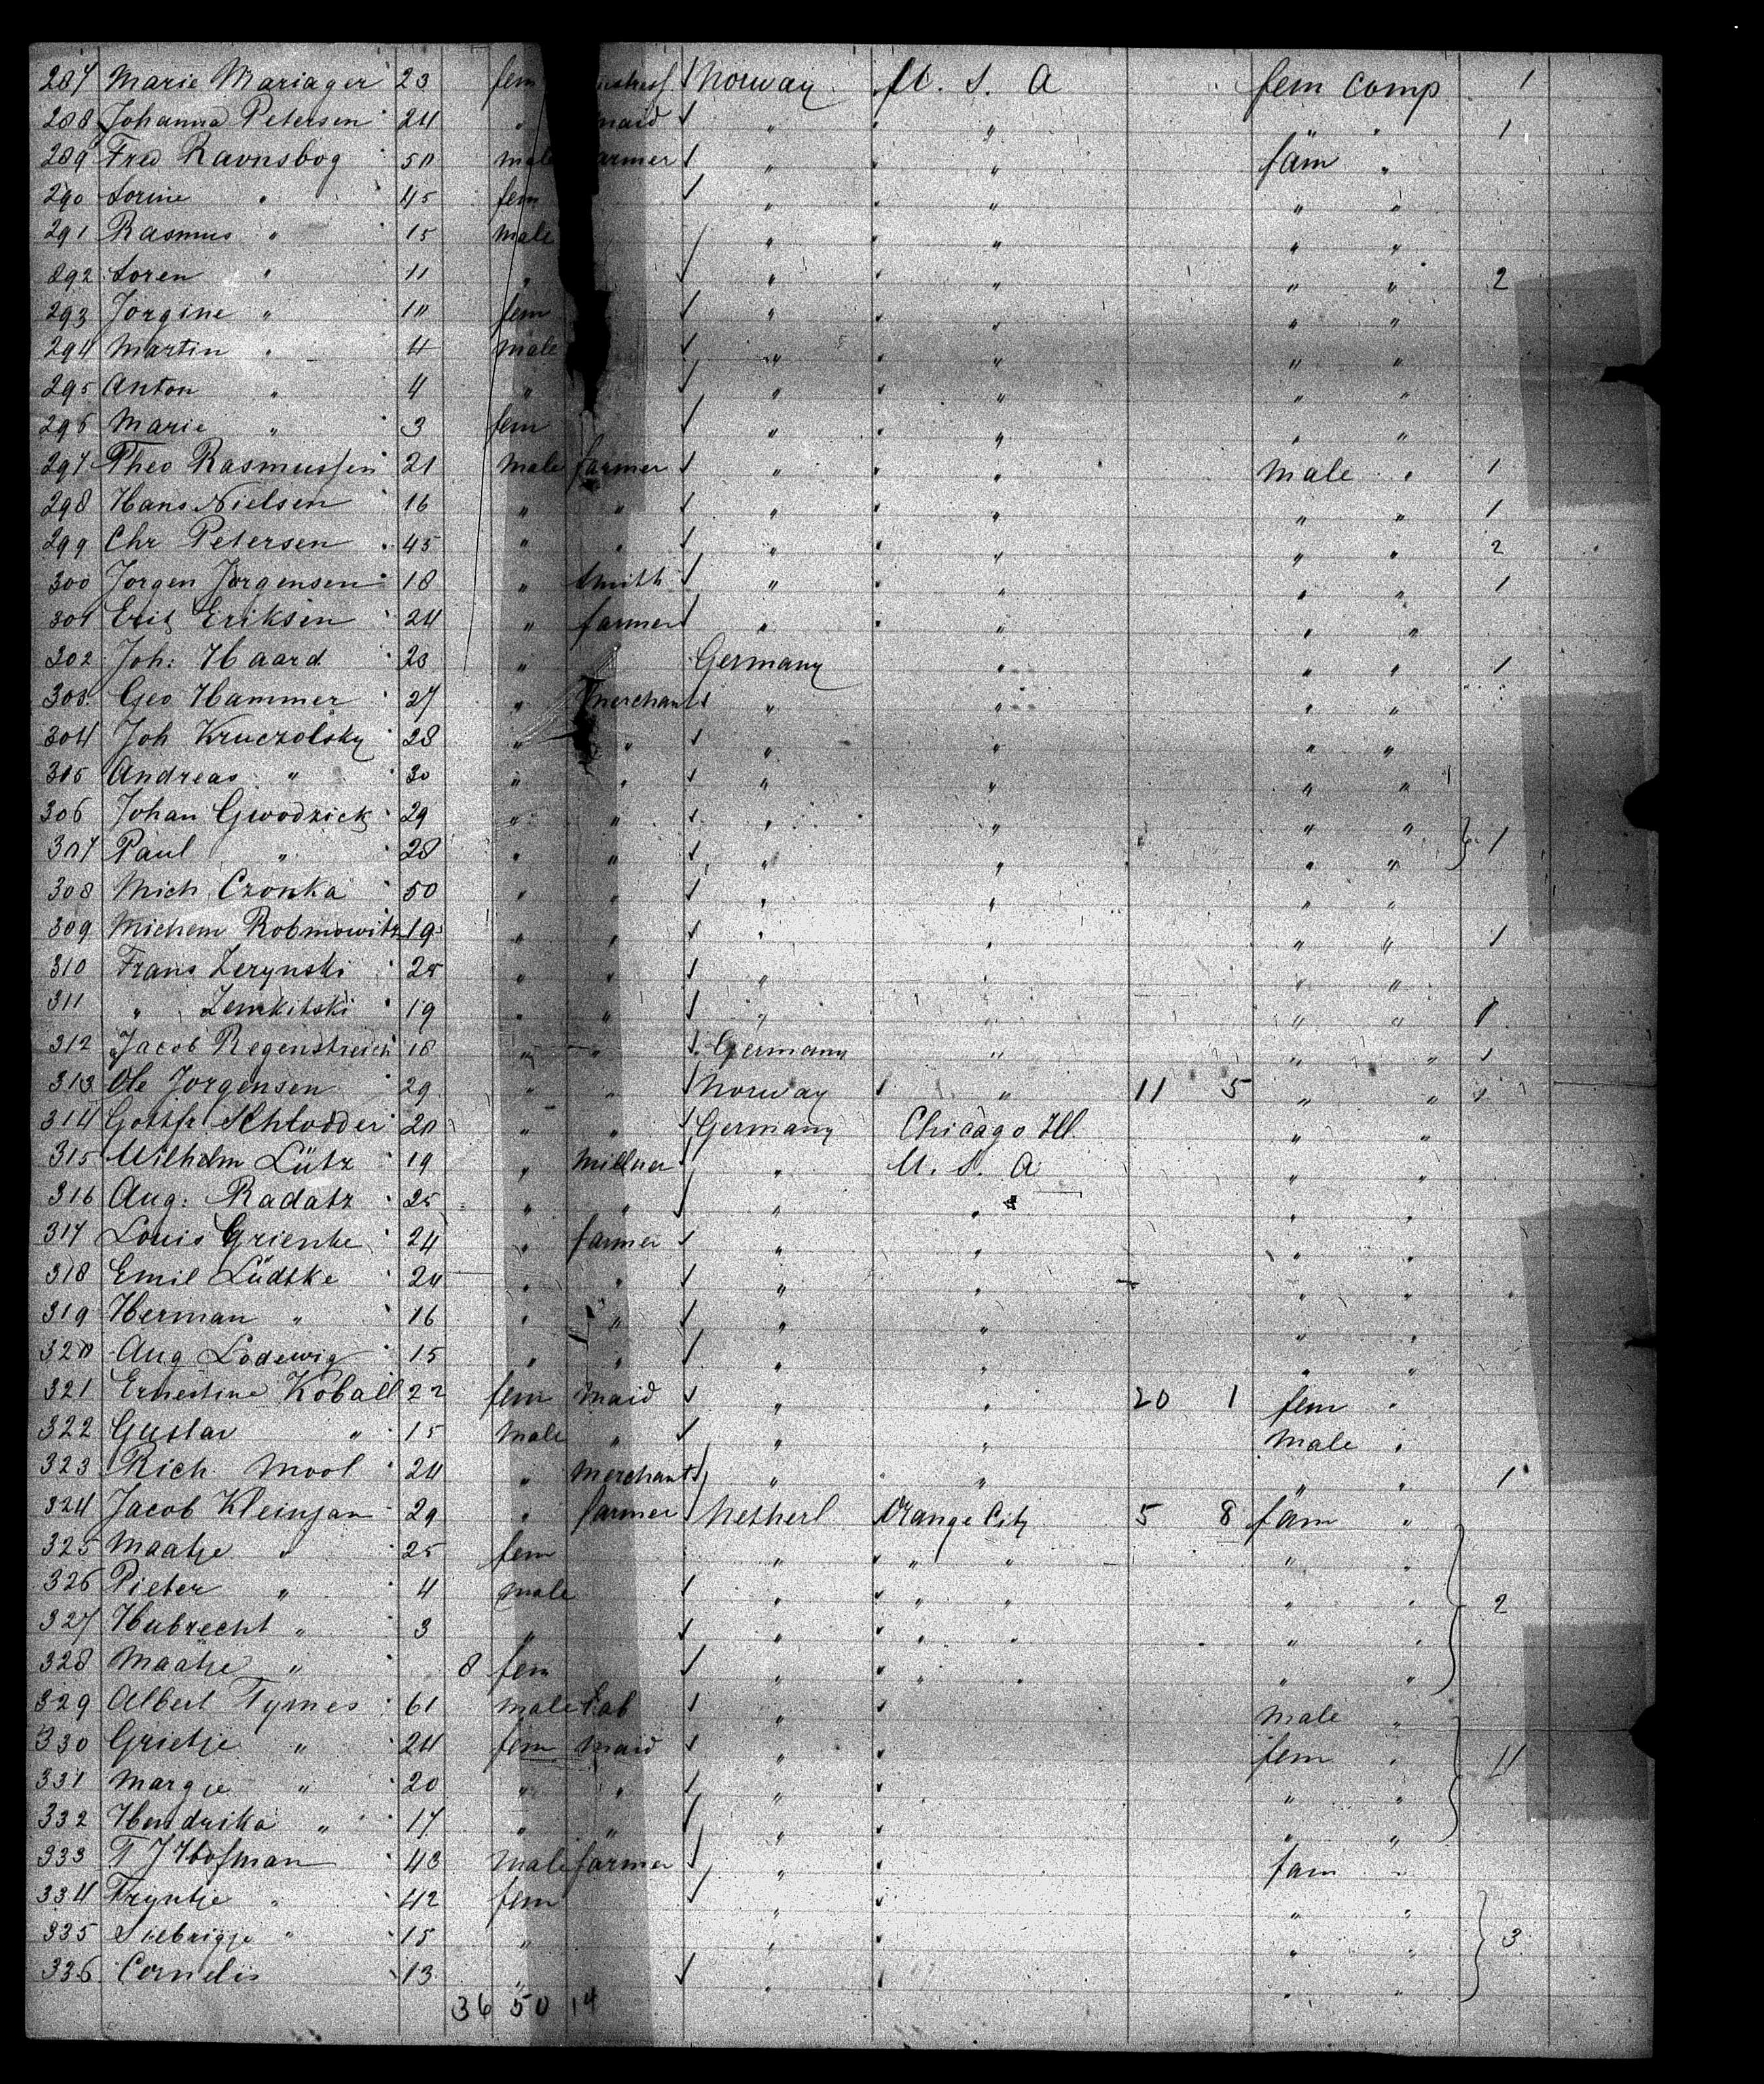 287 Marie Mariager 23 fem Norway U. S. A fem comp 1
288 Johanna Petersen 24 " maid " " " " 1
289 Fred Ravnsbog 50 male farmer " " fam "
290 Sorine " 45 fem " " " "
291 Rasmus " 15 male " " " "
292 Soren " 11 " " " " " 2
293 Jorgine " 10 fem " " " "
294 Martin " 4 male " " " "
295 Anton " 4 " " " " "
296 Marie " 3 fem " " " "
297 Theo Rasmussen 21 male farmer " " male " 1
298 Hans Nielsen 16 " " " " " " 1
299 Chr Petersen 45 " " " " " " 2
300 Jorgen Jorgensen 18 " Smith " " " " 1
301 Eriksen 24 " farmer " " " "
302 Joh: Haard 23 " Germany " " " 1
303 Geo Hammer 27 " merchant " " " "
304 Joh Kruczolsky 28 " " " " " "
305 Andreas " 30 " " " " " "
306 Johan Gwodzick 29 " " " " " "
307 Paul " 28 " " " " " " 1
308 Mich Czonka 50 " " " " " "
309 Michem Robmowitz 19 " " " " " " 1
310 Frans Zerynski 25 " " " " " "
311 " Zemkitski 19 " " " " " " 1
312 Jacob Regenstreich 18 " " Germany " " " 1
313 Ole Jorgensen 29 " " Norway " 11 5 " " 1
314 Gottfr Schlodder 20 " " Germany Chicago Ill. " "
315 Wilhelm Lütz 19 " Millner " U. S. A " "
316 Aug: Radatz 25 " " " " " "
317 Louis Grienke 24 " farmer " " " "
318 Emil Lüdtke 24 " " " " " "
319 Herman " 16 " " " " " "
320 Aug Lodewig 15 " " " " " "
321 Ernestine Koball 22 fem Maid " " 20 1 fem "
322 Gustav " 15 Male " " " Male "
323 Rich Mool 24 " Merchant " " " " 1
324 Jacob Kleinjan 29 " farmer Netherl Orange City 5 8 fam "
325 Maatje " 25 fem " " " " "
326 Pieter " 4 male " " " " "
327 Hubrecht " 3 " " " " " " 2
328 Maatje " 8 fem " " " " "
329 Albert Tymes 61 male Lab " male "
330 Grietje " 24 fem maid " fem " 11
331 Margje " 20 " " " " "
332 Hendrika " 17 " " " " "
333 T J Hofman 43 male farmer " fam "
334 Tryntje " 42 fem " " "
335 Siebrigje " 15 " " " " 3
336 Cornelis 13 " " " "
36 50 14